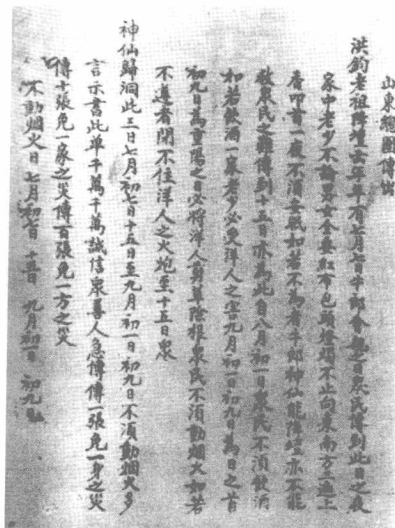 山東總團傳出
洪鈞老祖降壇去年年有七月七日牛郎會親之日眾民傳到此日之夜
家中老少不論男女全要紅布包頭燈燭不止向東南方三遍上
香叩首一夜不須安眠如若不為者牛郎神仙能降壇亦不能
救眾民之難傳到十五日亦為此自八月初一日眾民不須飲酒
如若飲酒一家老少必受洋人之害九月初一日初九日為日之首
初九日為重陽之日必將洋人剪草除根眾民不須動烟火如若
不遵者閉不住洋人之火炮至十五日眾
神仙歸洞此三日七月初七日十五日至九月初一日初九日不須動烟火多
言示書此單千萬千萬誠信眾善人急傳傳一張免一身之災
傳十張免一家之災傳百張免一方之災
不動烟火日 七月初七日 十五日 九月初一日 初九日